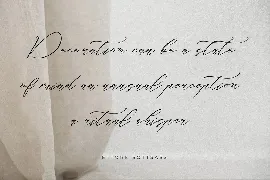 Decoration can be a state
of mind an unusual perception
a ritual whisper